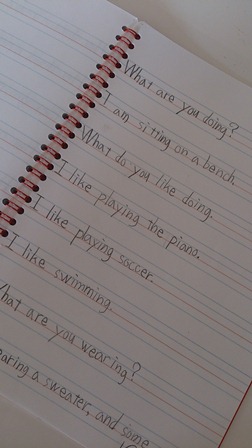 What are you doing?
I am sitting on a bench.
What do you like doing.
I like playing the piano.
I like playing soccer.
I like swimming.
What are you wearing?
wearing a sweater, and some